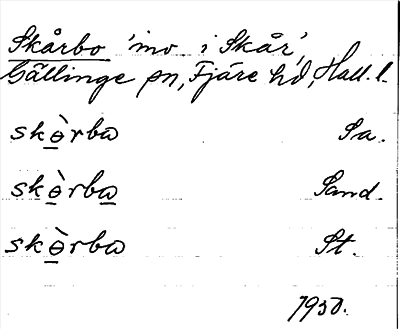 Skårbo 'inv. i Skår',
Gällinge sn, Fjäre hd, Hall. l.
skɵ̀rba Sa.
skɵ̀rba Sand.
skɵ̀rba St.
1930.